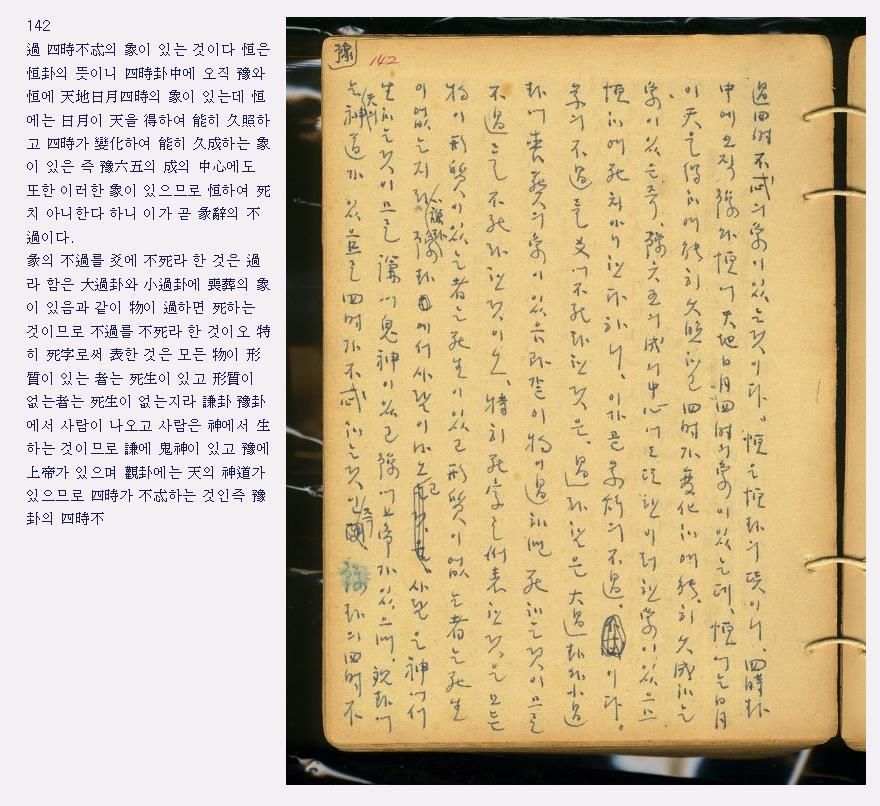 142
過 四時不忒의 象이 있는 것이다 恒은
恒卦의 뜻이니 四時卦中에 오직 豫와
恒에 天地日月四時의 象이 있는데 恒
에는 日月이 天을 得하여 能히 久照하
고 四時가 變化하여 能히 久成하는 象
이 있은 즉 豫六五의 成의 中心에도
또한 이러한 象이 있으므로 恒하여 死
치 아니한다 하니 이가 곧 彖辭의 不
過이다.
彖의 不過를 爻에 不死라 한 것은 過
라 함은 大過卦와 小過卦에 喪葬의 象
이 있음과 같이 物이 過하면 死하는
것이므로 不過를 不死라 한 것이오 特
히 死字로써 表한 것은 모든 物이 形
質이 있는 者는 死生이 있고 形質이
없는者는 死生이 없는지라 謙卦 豫卦
에서 사람이 나오고 사람은 神에서 生
하는 것이므로 謙에 鬼神이 있고 豫에
上帝가 있으며 觀卦에는 天의 神道가
있으므로 四時가 不忒하는 것인즉 豫
卦의 四時不
豫
142
過四時不忒의 象이 있는 것이다. 恒은 恒卦의 뜻이니, 四時卦
中에 오직 豫와 恒에 天地日月四時의 象이 있는데, 恒에는 日月
이 天을 得하여 能히 久照하고 四時가 變化하여 能히 久成하는
象이 있은즉, 豫六五의 成의 中心에도 또한 이러한 象이 있으므로
恒하여 死치 아니한다 하니, 이가 곧 彖辭의 不過이다.
彖의 不過를 爻에 不死라 한 것은, 過라 함은 大過卦와 小過
卦에 喪葬의 象이 있음과 같이 物이 過하면 死하는 것이므로
不過를 不死라 한 것이오, 特히 死字로써 表한 것은 모든
物이 形質이 있는 者는 死生이 있고 形質이 없는 者는 死生
이 없는지라 謙卦 豫卦에서 사람이 나오고 사람은 神에서
生하는 것이므로 謙에 鬼神이 있고 豫에 上帝가 있으며, 觀卦에
는 天의 神道가 있으므로 四時가 不忒하는 것인즉 豫卦의 四時不